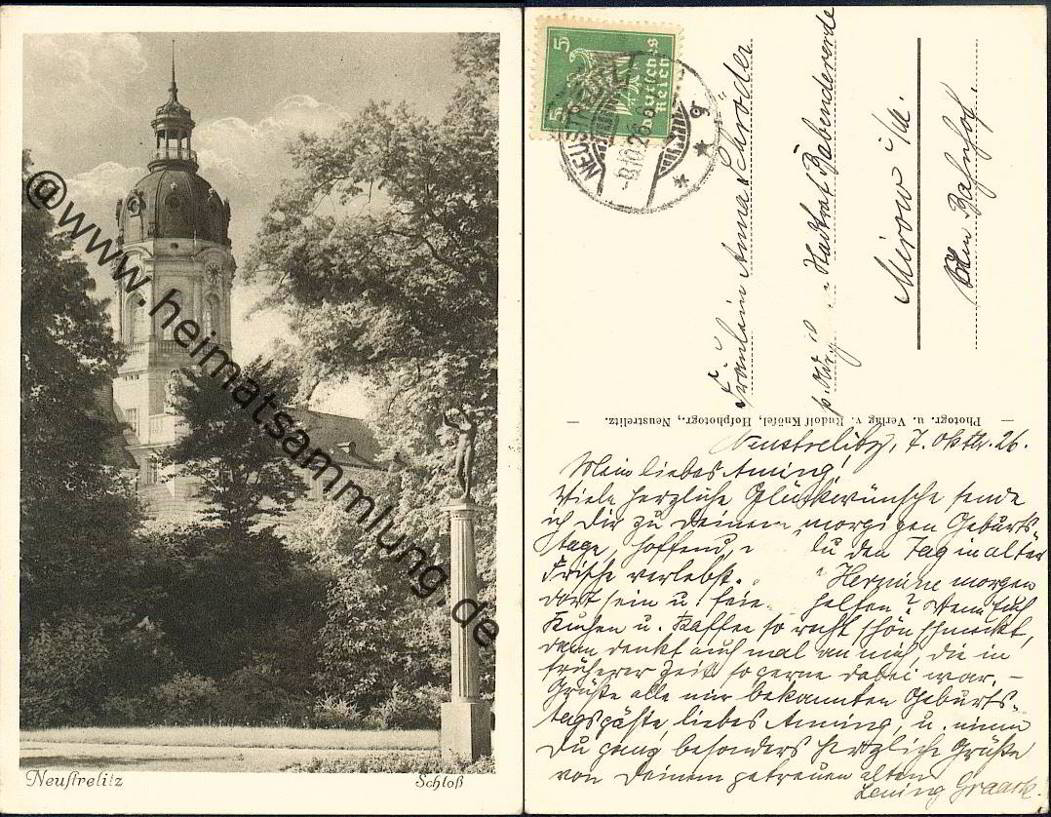 Neustrelitz
Schloß
@www.heimatsammlung.de
5
5
Deutsches
Reich
NEUSTRELITZ
8.10.26.
* * g
Fräulein Anna Schröder
Mirow i/M.
Am Bahnhof
Photogr. u. Verlag v. Rudolf Knöfel, Hofphotogr., Neustrelitz.
Neustrelitz, 7. Oktbr. 26.
Mein liebes Anning!
Viele herzliche Glückwünsche sende
ich Dir zu Deinem morgigen Geburts-
tage, hoffend, du den Tag in alter
Frische verlebst. Hermine morgen
dort sein u. helfen? Wenn Euch
Kuchen u. Kaffee so recht schön schmeckt,
dann denkt auch mal an mich die in
früherer Zeit so gerne dabei war. –
Grüße alle mir bekannten Geburts-
tagsgäste, liebes Anning, u. nimm
Du ganz besonders herzliche Grüße
von Deinem getreuen alten
Lening Graack.